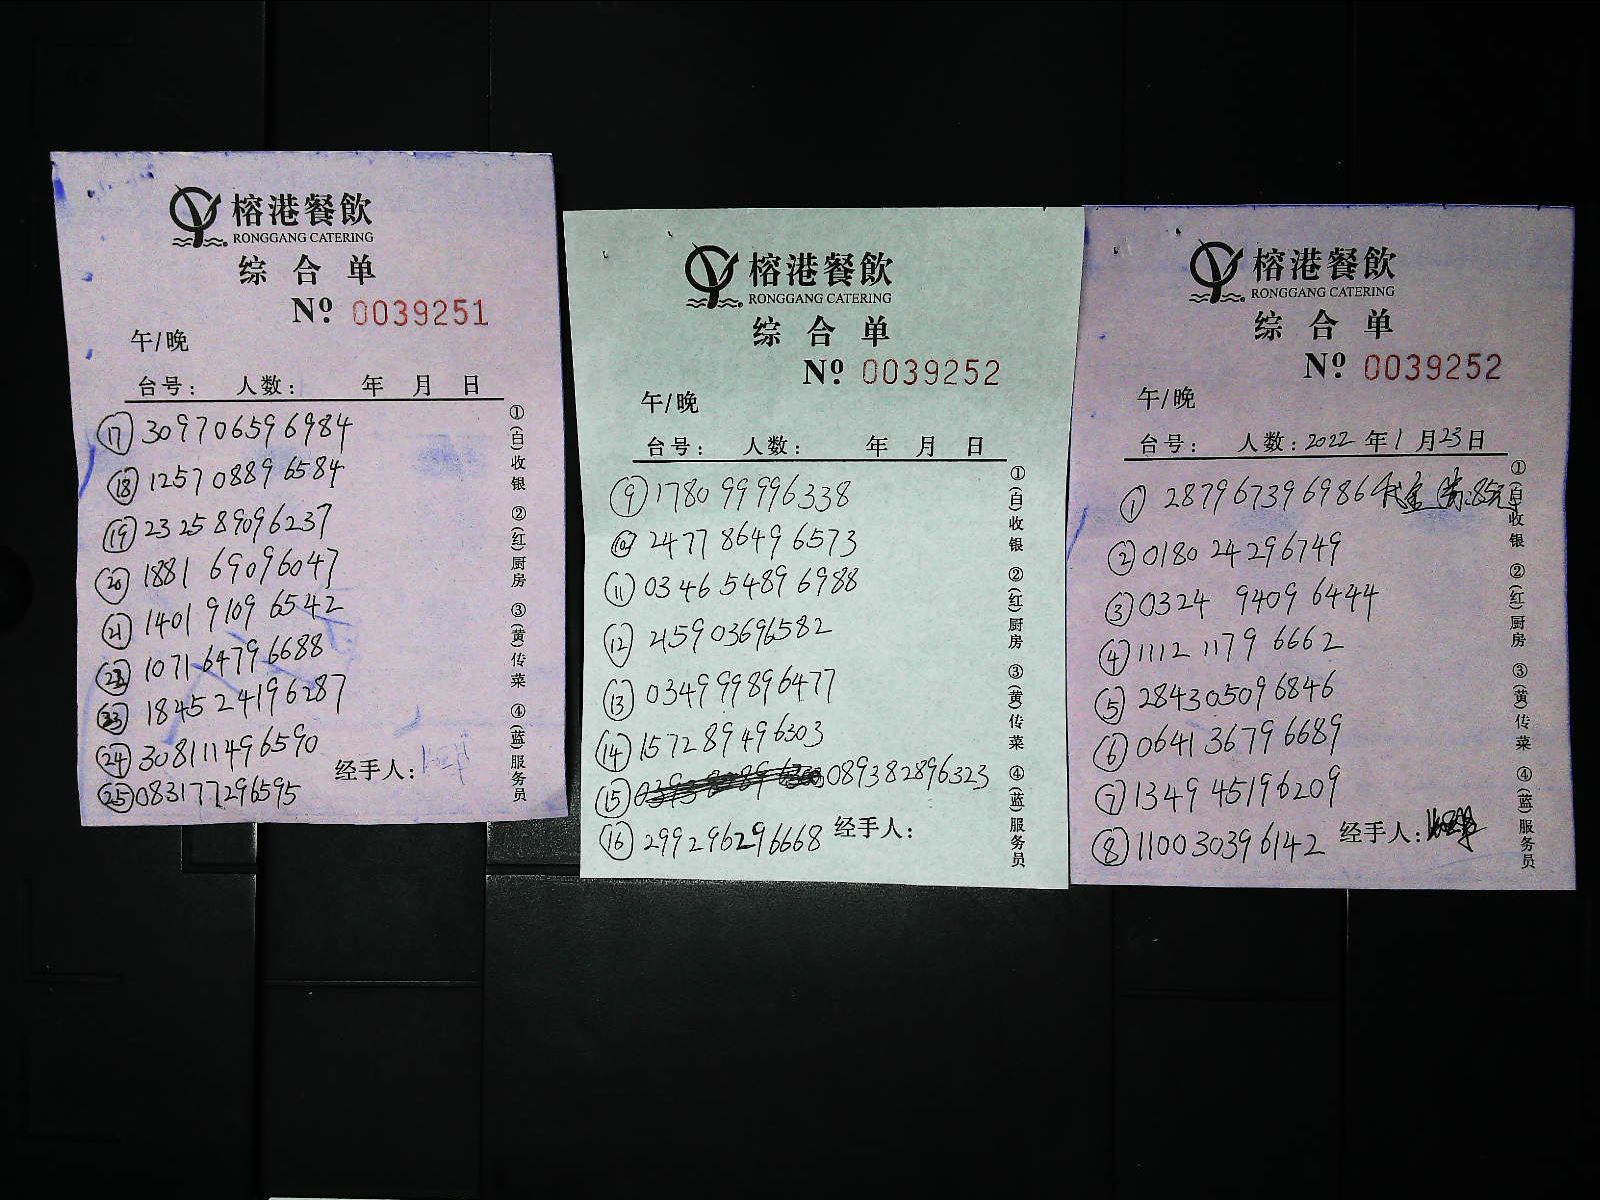 榕港餐飲
RONGGANG CATERING
综合单
Nº 0039251
午/晚
台号： 人数： 年 月 日
⑰ 309706596984
⑱ 125708896584
⑲ 232589096237
⑳ 188169096047
㉑ 140191096542
㉒ 107164796688
㉓ 184524196287
㉔ 308111496590
㉕ 083177296595
经手人：
①(白)收银 ②(红)厨房 ③(黄)传菜 ④(蓝)服务员
榕港餐飲
RONGGANG CATERING
综合单
Nº 0039252
午/晚
台号： 人数： 年 月 日
⑨ 178099996338
⑩ 247786496573
⑪ 034654896988
⑫ 215903696582
⑬ 034999896477
⑭ 157289496303
⑮ 089382896323
⑯ 299296296668
经手人：
①(白)收银 ②(红)厨房 ③(黄)传菜 ④(蓝)服务员
榕港餐飲
RONGGANG CATERING
综合单
Nº 0039252
午/晚
台号： 人数：2022年1月23日
① 287967396986 代金 85元
② 018024296749
③ 032494096444
④ 111211796662
⑤ 284305096846
⑥ 064136796689
⑦ 134945196209
⑧ 110030396142
经手人：
①(白)收银 ②(红)厨房 ③(黄)传菜 ④(蓝)服务员